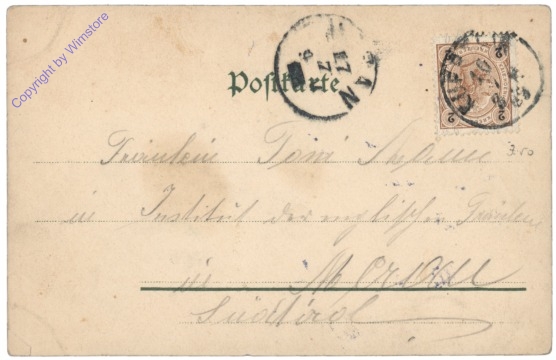 Copyright by Wimstore
Postkarte
2
2 2
3.50
Fräulein Toni
in Institut der englischen Fräulein
in Meran
Südtirol